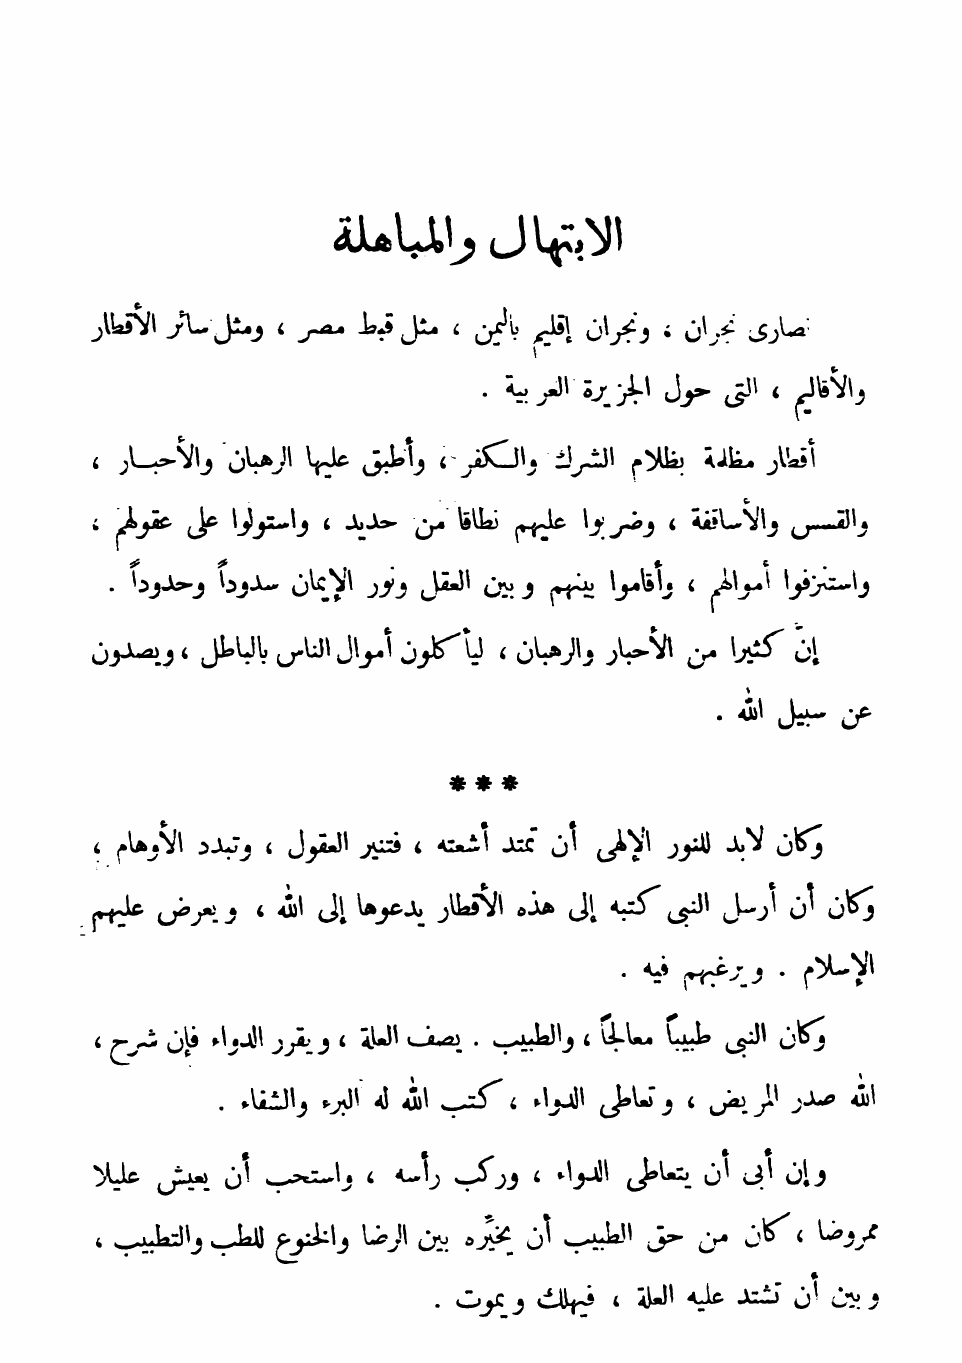 الابتهال والمباهلة
نصارى نجران ، ونجران إقليم باليمن ، مثل قبط مصر ، ومثل سائر الأقطار
والأقاليم ، التى حول الجزيرة العربية .
أقطار مظلمة بظلام الشرك والكفر ، وأطبق عليها الرهبان والأحبار ،
والقسس والأساقفة ، وضربوا عليهم نطاقا من حديد ، واستولوا على عقولهم ،
واستنزفوا أموالهم ، وأقاموا بينهم وبين العقل ونور الإيمان سدوداً وحدوداً .
إنّ كثيرا من الأحبار والرهبان ، ليأكلون أموال الناس بالباطل ، ويصدون
عن سبيل الله .
* * *
وكان لابد للنور الإلهى أن تمتد أشعته ، فتنير العقول ، وتبدد الأوهام ،
وكان أن أرسل النبى كتبه إلى هذه الأقطار يدعوها إلى الله ، ويعرض عليهم
الإسلام . ويرغبهم فيه .
وكان النبى طبيباً معالجاً ، والطبيب . يصف العلة ، ويقرر الدواء فإن شرح ،
الله صدر المريض ، وتعاطى الدواء ، كتب الله له البرء والشفاء .
وإن أبى أن يتعاطى الدواء ، وركب رأسه ، واستحب أن يعيش عليلا
ممروضا ، كان من حق الطبيب أن يخيِّره بين الرضا والخنوع للطب والتطبيب ،
وبين أن تشتد عليه العلة ، فيهلك ويموت .